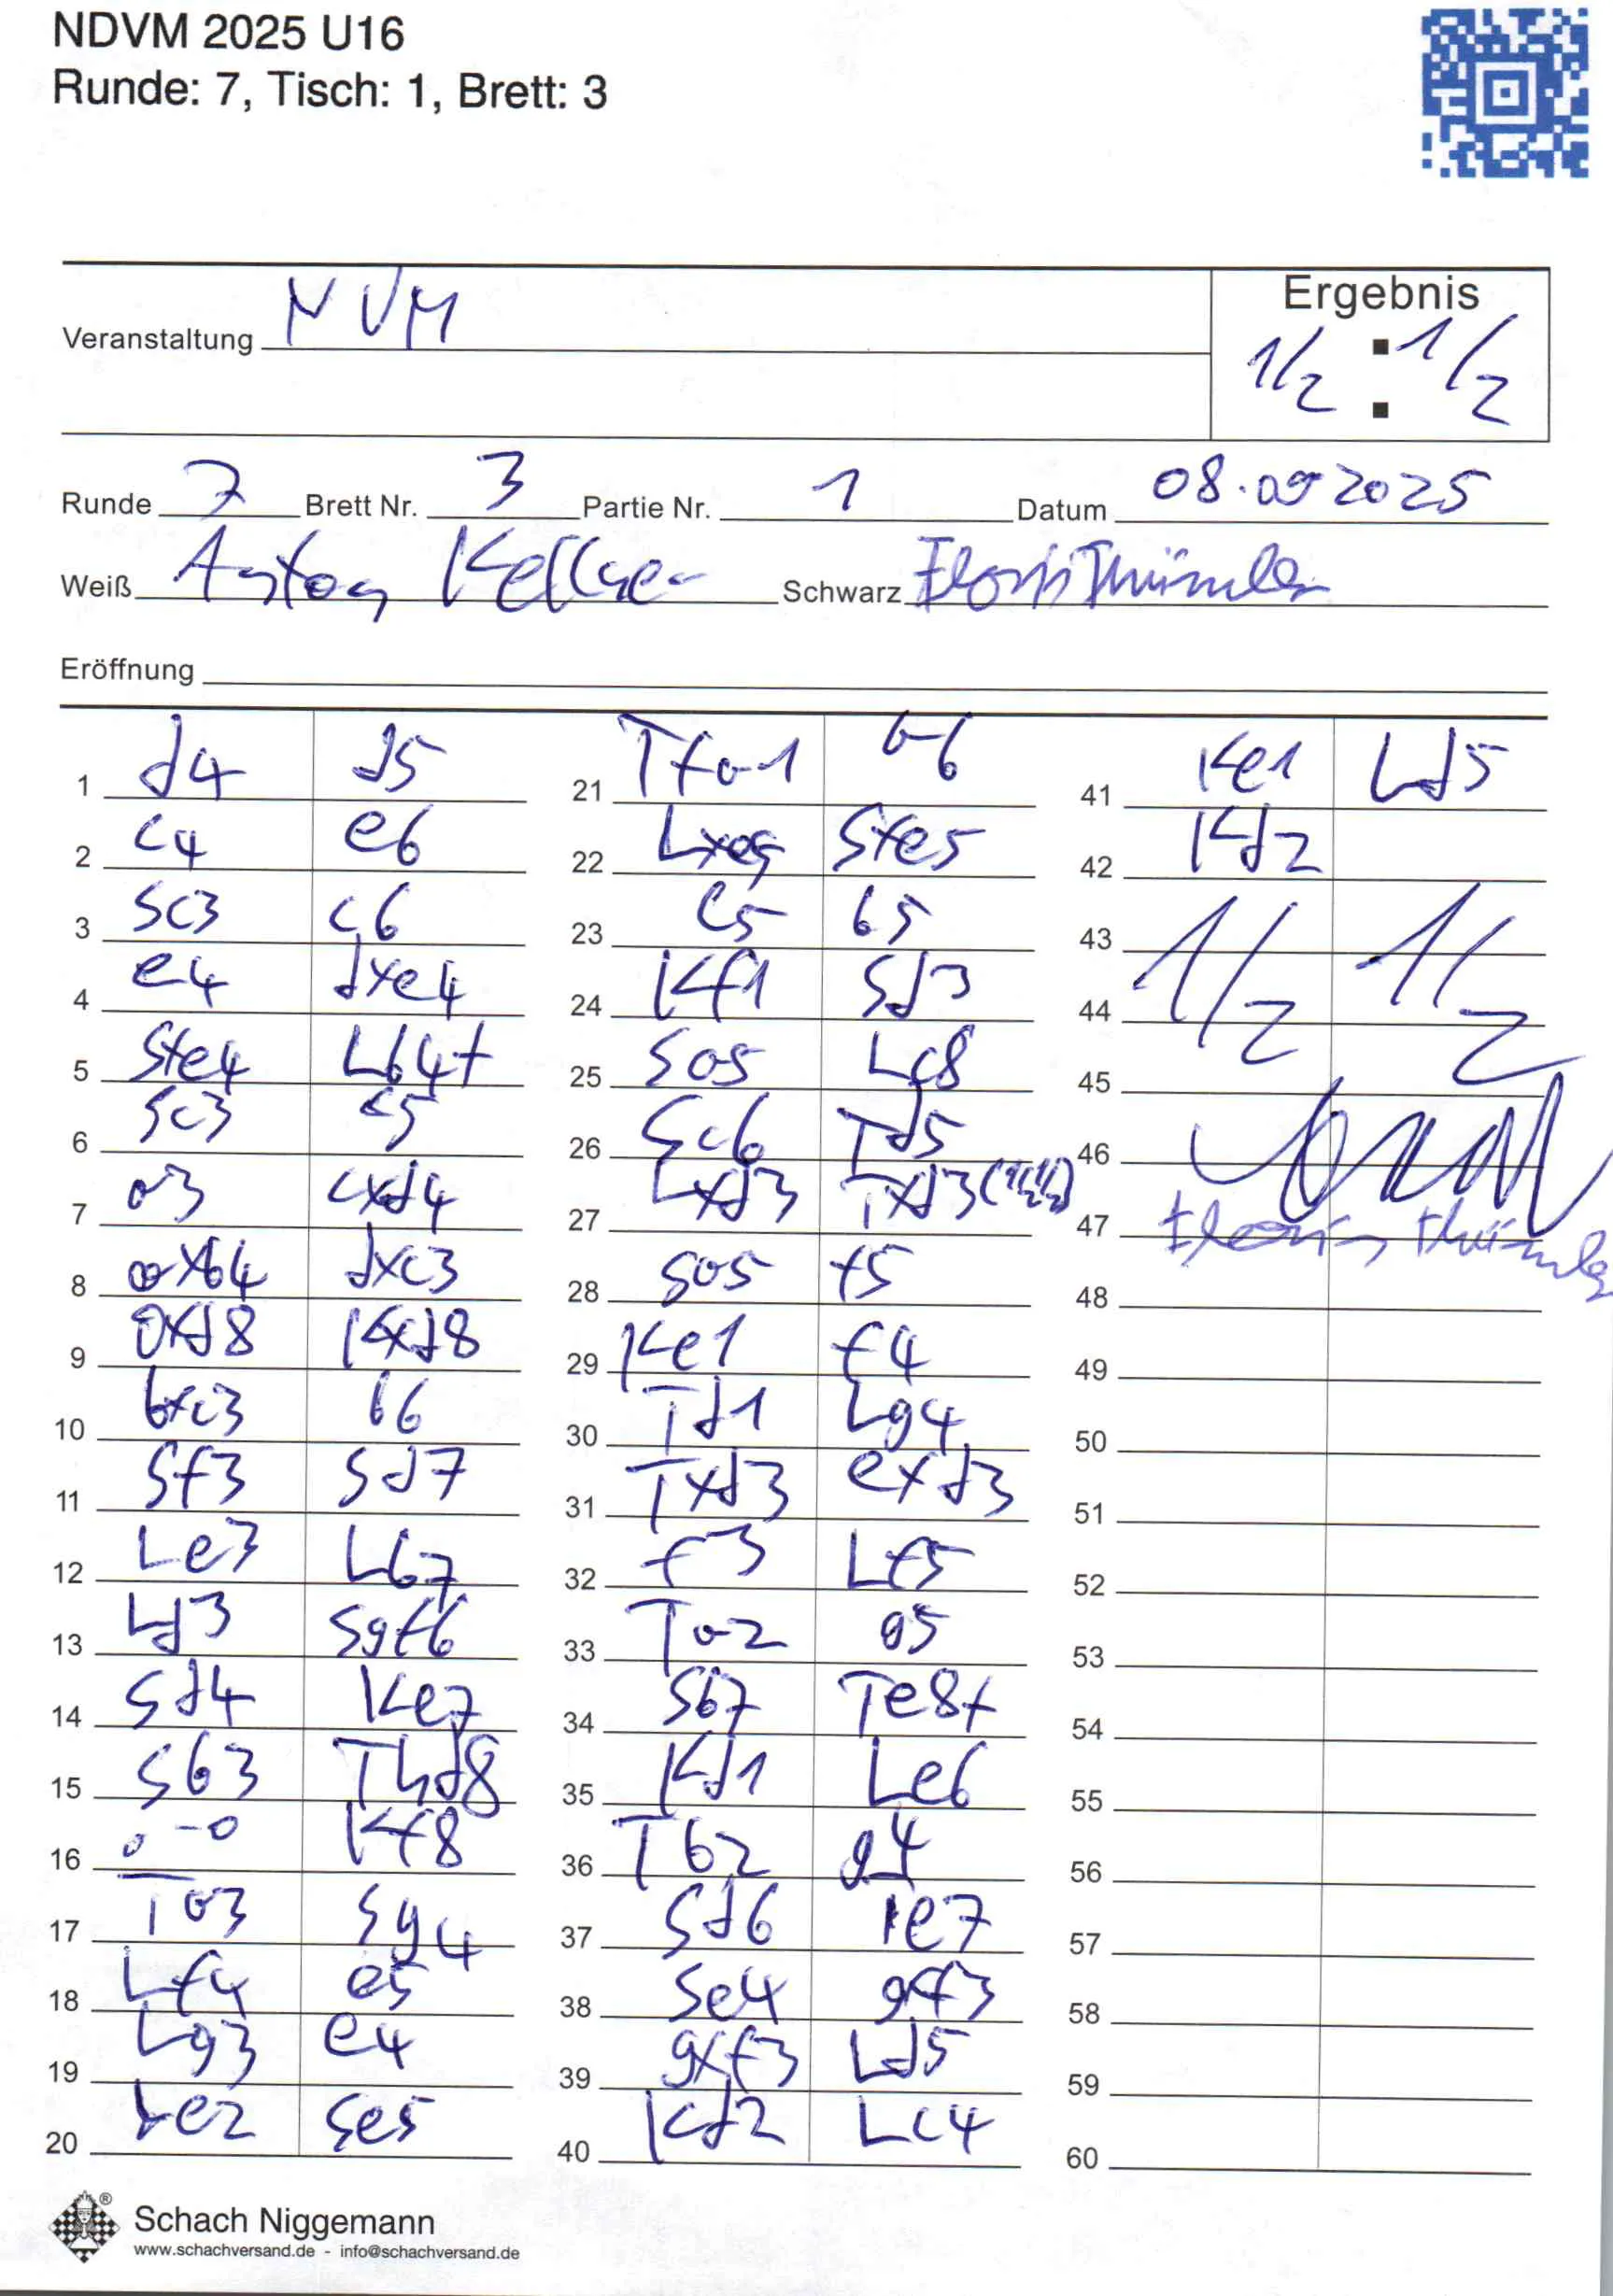 NDVM 2025 U16
Runde: 7, Tisch: 1, Brett: 3
Ergebnis
Veranstaltung NVM
1/2 : 1/2
Runde 7 Brett Nr. 3 Partie Nr. 1 Datum 08.09 2025
Weiß Anton Schwarz
Eröffnung
1 d4 d5
2 c4 e6
3 Sc3 c6
4 e4 dxe4
5 Sxe4 Lb4+
6 Sc3 c5
7 a3 cxd4
8 axb4 dxc3
9 Dxd8 Kxd8
10 bxc3 b6
11 Sf3 Sd7
12 Le3 Lb7
13 Ld3 Sgf6
14 Sd4 Ke7
15 Sb3 Thd8
16 0-0 Kf8
17 Ta3 Sg4
18 Lf4 e5
19 Lg3 e4
20 Le2 Se5
21 Tfa1 a6
22 Lxe5 Sxe5
23 c5 b5
24 Kf1 Sd3
25 Sa5 Lc8
26 Sc6 Td5
27 Lxd3 Txd3
28 Sa5 f5
29 Ke1 f4
30 Td1 Lg4
31 Txd3 exd3
32 f3 Lf5
33 Ta2 g5
34 Sb7 Te8+
35 Kd1 Le6
36 Tb2 g4
37 Sd6 Te7
38 Se4 gxf3
39 gxf3 Ld5
40 Kd2 Lc4
41 Ke1 Ld5
42 Kd2
43
44 1/2 1/2
45
46
47
48
49
50
51
52
53
54
55
56
57
58
59
60
Schach Niggemann
www.schachversand.de - info@schachversand.de